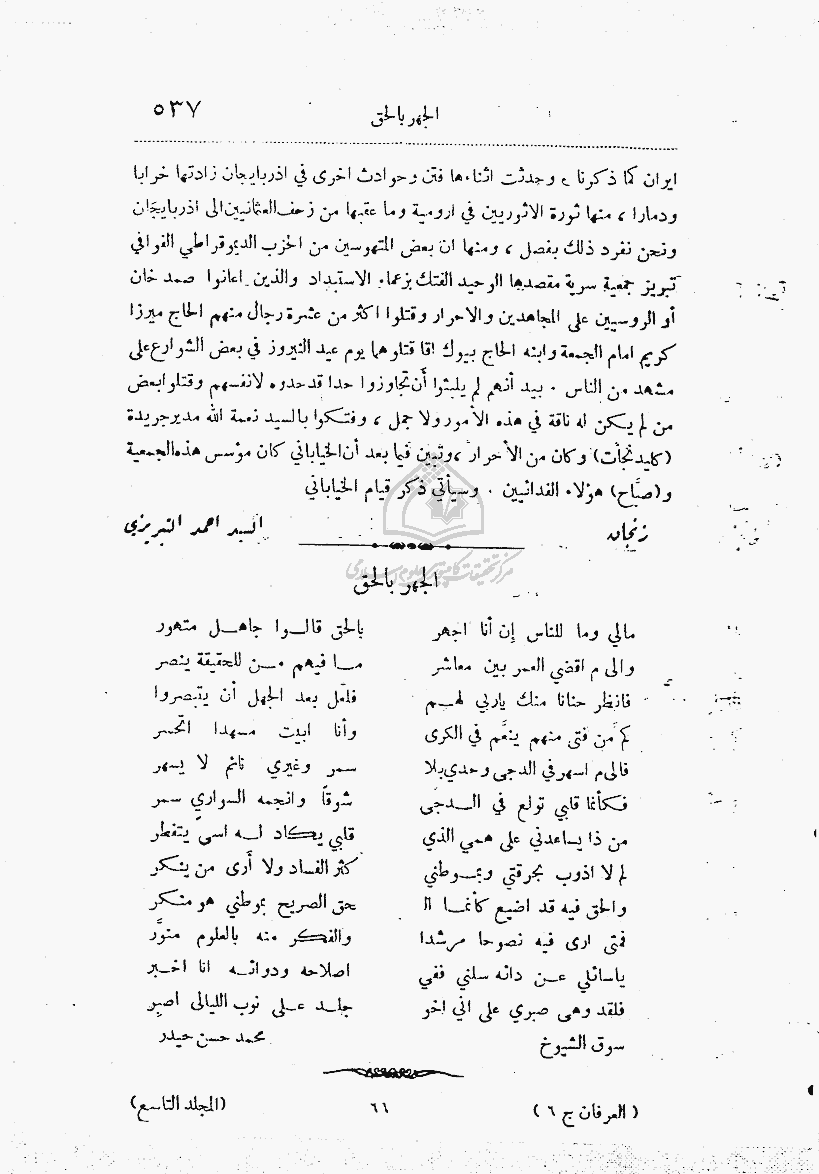 الجهر بالحق ٥٣٧
ايران كما ذكرنا ، وحدثت اثناءها فتن وحوادث اخرى في اذربايجان زادتها خرابا
ودمارا ، منها ثورة الاثوريين في ارومية وما عقبها من زحف العثمانيين الى اذربايجان
ونحن نفرد ذلك بفصل ، ومنها ان بعض المتهوسين من الحزب الديموقراطي الفوا في
تبريز جمعية سرية مقصدها الوحيد الفتك بزعماء الاستبداد والذين اعانوا صمد خان
أو الروسيين على المجاهدين والاحرار وقتلوا اكثر من عشرة رجال منهم الحاج ميرزا
كريم امام الجمعة وابنه الحاج بيوك اقا قتلوهما يوم عيد النيروز في بعض الشوارع على
مشهد من الناس . بيد أنهم لم يلبثوا أن تجاوزوا حدا قد حدوه لانفسهم وقتلوا بعض
من لم يكن له ناقة في هذه الأمور ولا جمل ، وفتكوا بالسيد نعمة الله مدير جريدة
(كليد نجات) وكان من الأحرار ، وتبين فيما بعد أن الخياباني كان مؤسس هذه الجمعية
و(صبَّاح) هؤلاء الفدائيين . وسيأتي ذكر قيام الخياباني
زنجان السيد احمد التبريزي
مركز تحقيقات كامپيوترى علوم اسلامى
الجهر بالحق
مالي وما للناس إن أنا اجهر بالحق قالوا جاهل متهور
والى م اقضي العمر بين معاشر ما فيهم من للحقيقة ينصر
فانظر حنانا منك ياربي لهم فلعل بعد الجهل أن يتبصروا
كم من فتى منهم ينعَّم في الكرى وأنا ابيت مسهدا اتحسر
فالى م اسهر في الدجى وحدي بلا سمر وغيري نائم لا يسهر
فكأنما قلبي تولع في الدجى شوقاً وانجمه السواري سمر
من ذا يساعدني على همي الذي قلبي يكاد له اسىً يتفطر
لم لا اذوب بحرقتي وبموطني كثر الفساد ولا أرى من ينكر
والحق فيه قد اضيع كأنما ال حق الصريح بموطني هو منكر
فمتى ارى فيه نصوحا مرشدا والفكر منه بالعلوم منوَّر
ياسائلي عن دائه سلني ففي اصلاحه ودوائه انا اخبر
فلقد وهى صبري على اني اخو جلد على نوب الليالى اصبر
سوق الشيوخ محمد حسن حيدر
(العرفان ج ٦) ٦٦ (المجلد التاسع)